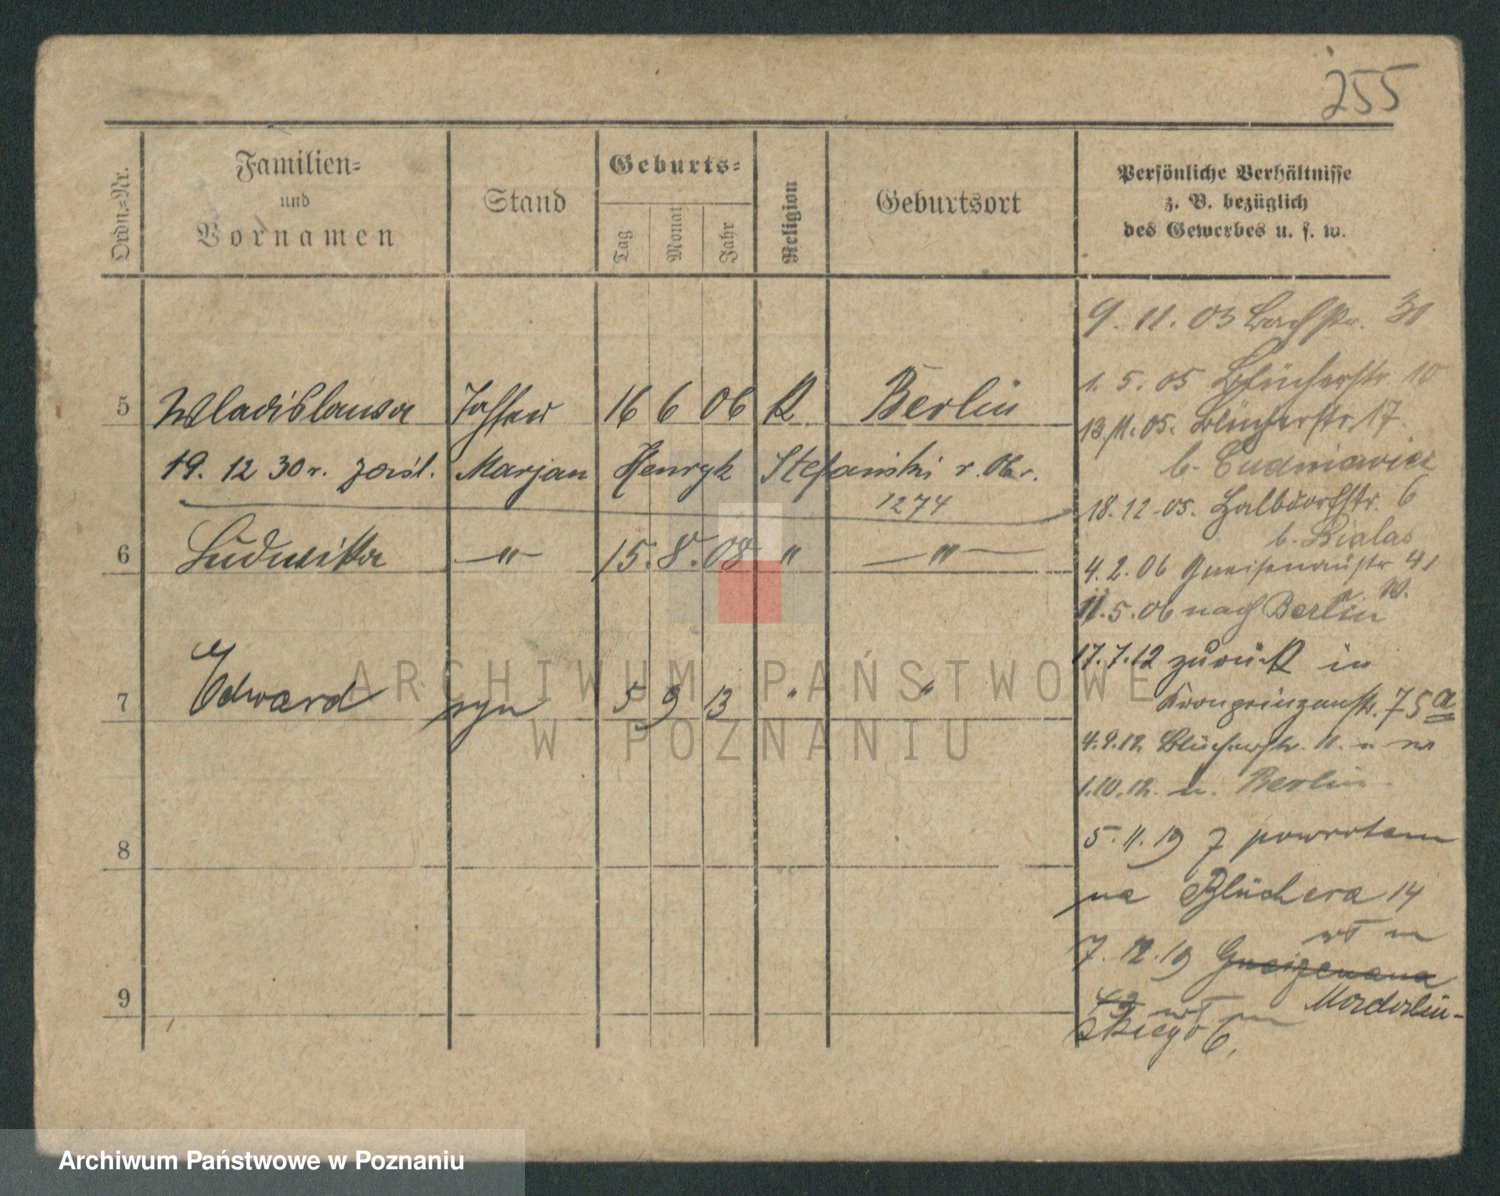 255
Ordn.-Nr.
Familien-
und
Vornamen
Stand
Geburts-
Tag
Monat
Jahr
Religion
Geburtsort
Persönliche Verhältnisse
z. B. bezüglich
des Gewerbes u. s. w.
9. 11. 03 Bachstr. 31
1. 5. 05 Blücherstr 10
5 Wladislawa Tochter 16 6 06 K Berlin
13.11.05. Blücherstr. 17.
19. 12 30 r. zaśl. Marjan Henryk Stefański r. 06 r.
1274
18. 12. 05. Halbdorfstr. 6
b. Bialas
6 Ludwika " 15. 8. 08 " "
4. 2. 06 Gneisenaustr 41
11. 5. 06 nach Berlin
17. 7. 12 zurück in
Kronprinzenstr. 75a
7 Edward syn 5 9 13 " "
4.9.12 Blücherstr. 11.
1.10.12. n. Berlin
5. 11. 19 z powrotem
8
na Blüchera 14
wt m
7. 12. 19 Gneizenaua
9
43 wt m Mordorliń-
skiego 6.
ARCHIWUM PAŃSTWOWE
W POZNANIU
Archiwum Państwowe w Poznaniu